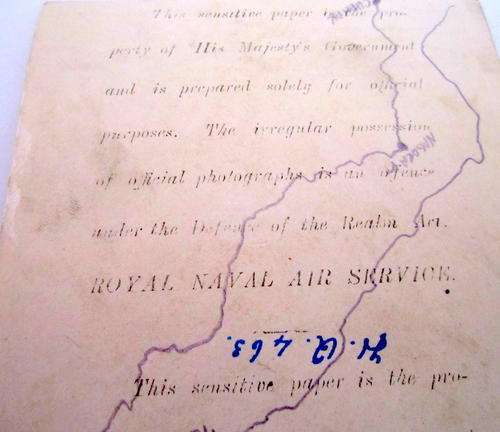 This sensitive paper is the pro-
perty of His Majesty's Government
and is prepared solely for official
purposes. The irregular possession
of official photographs is an offence
under the Defence of the Realm Act.
ROYAL NAVAL AIR SERVICE.
H. Q. 463.
This sensitive paper is the pro-